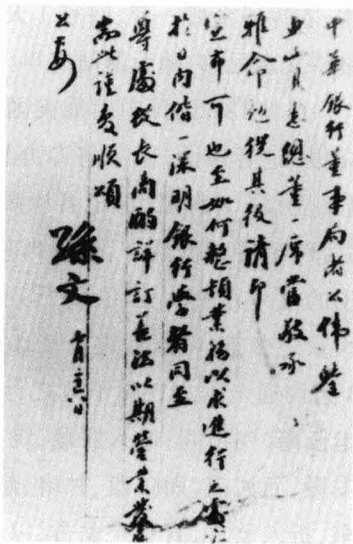 中華銀行董事局諸公偉鑒
總董一席當敬承
雅命勉從其後請即
宣布可也至如何整頓業務以求進行之處
於日內偕一深明銀行學者同至
尊處從長商酌詳訂善法以期營業發
耑此謹复順頌
公安
孫文